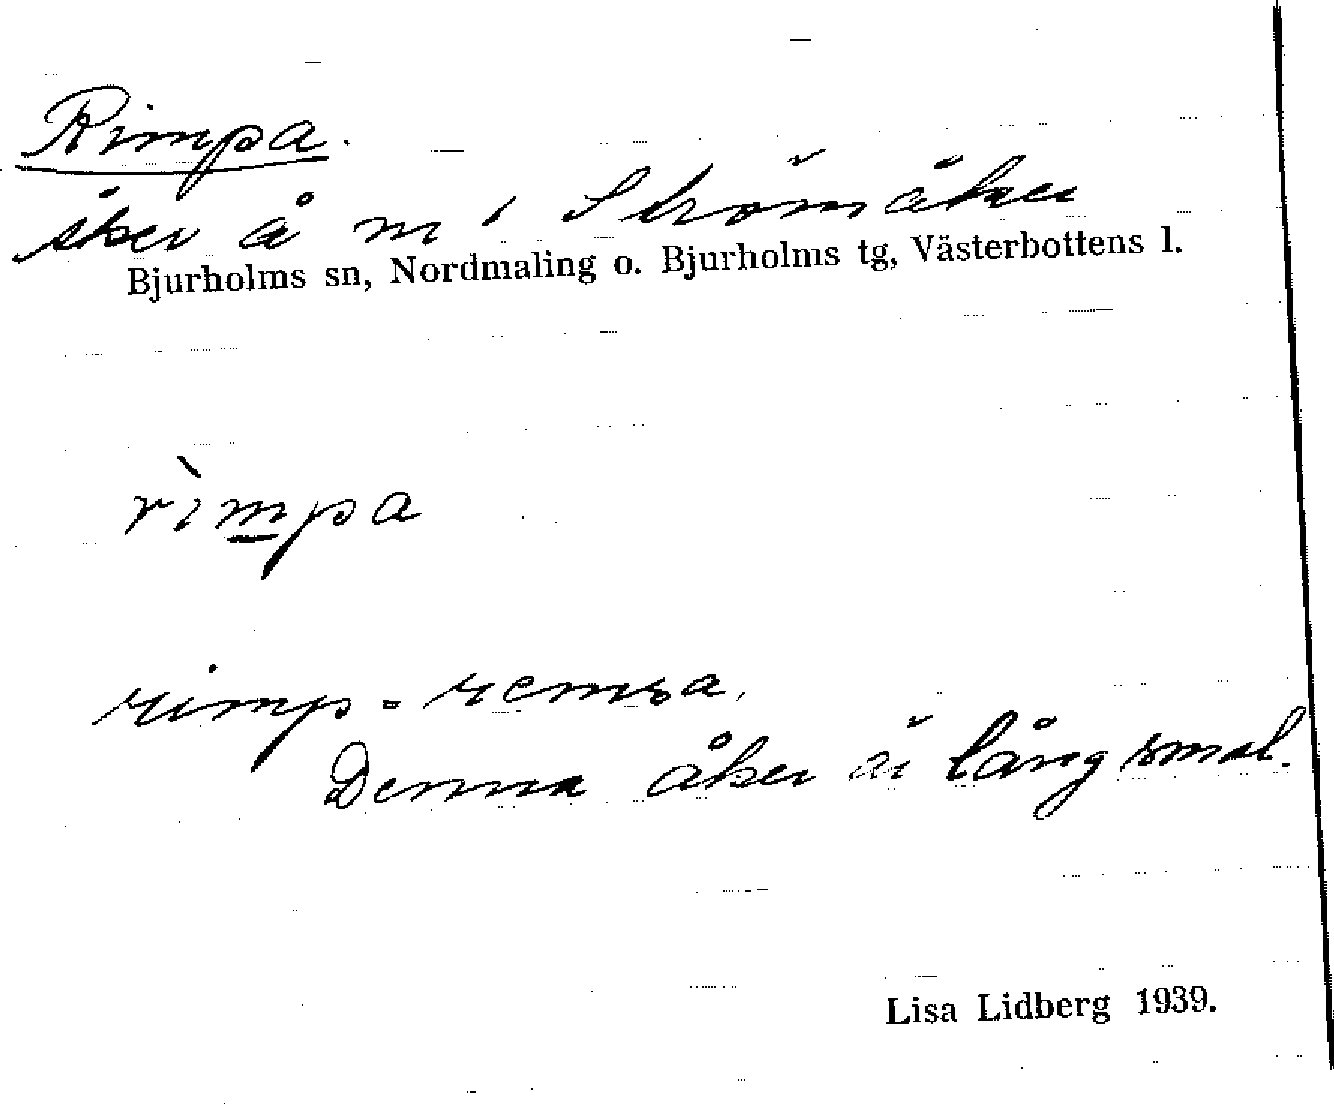 Rimpa.
åker å nr 1 Strömåker
Bjurholms sn, Nordmaling o. Bjurholms tg, Västerbottens l.
rìmpa
rimp = remsa.
Denna åker är lång smal.
Lisa Lidberg 1939.